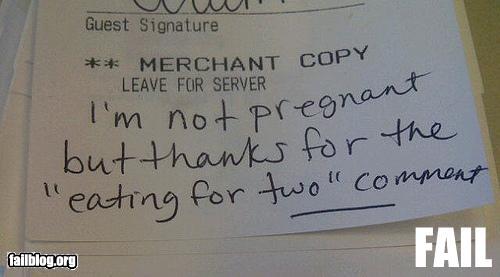 Guest Signature
** MERCHANT COPY
LEAVE FOR SERVER
I'm not pregnant
but thanks for the
"eating for two" comment
failblog.org
FAIL